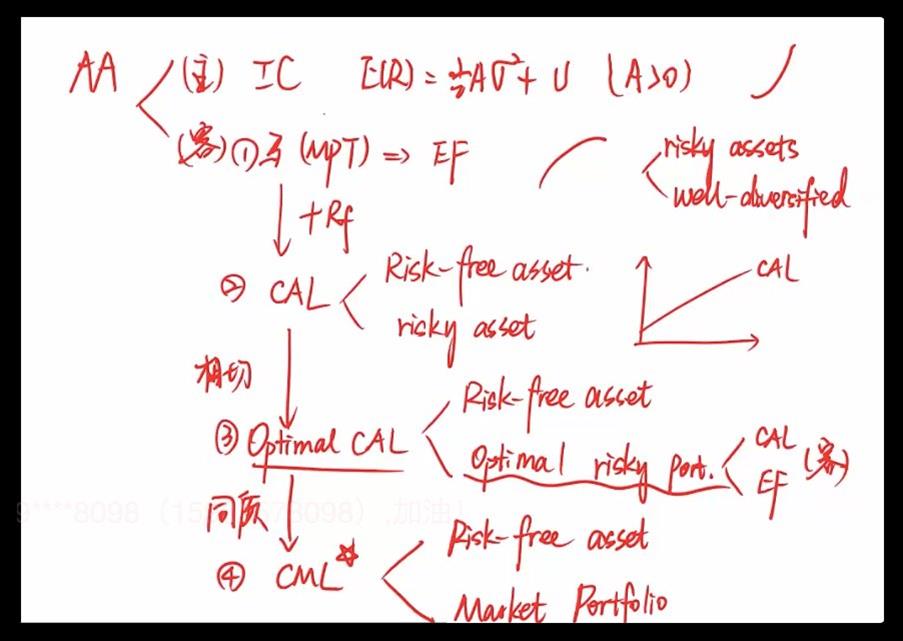 AA (主) IC E(R) = ½Aσ²+ U (A>0)
(客) ① 马 (MPT) => EF
risky assets
well-diversified
+Rf
② CAL
Risk-free asset
risky asset
CAL
相切
③ Optimal CAL
Risk-free asset
Optimal risky Port.
CAL
EF
(客)
同质
④ CML
Risk-free asset
Market Portfolio